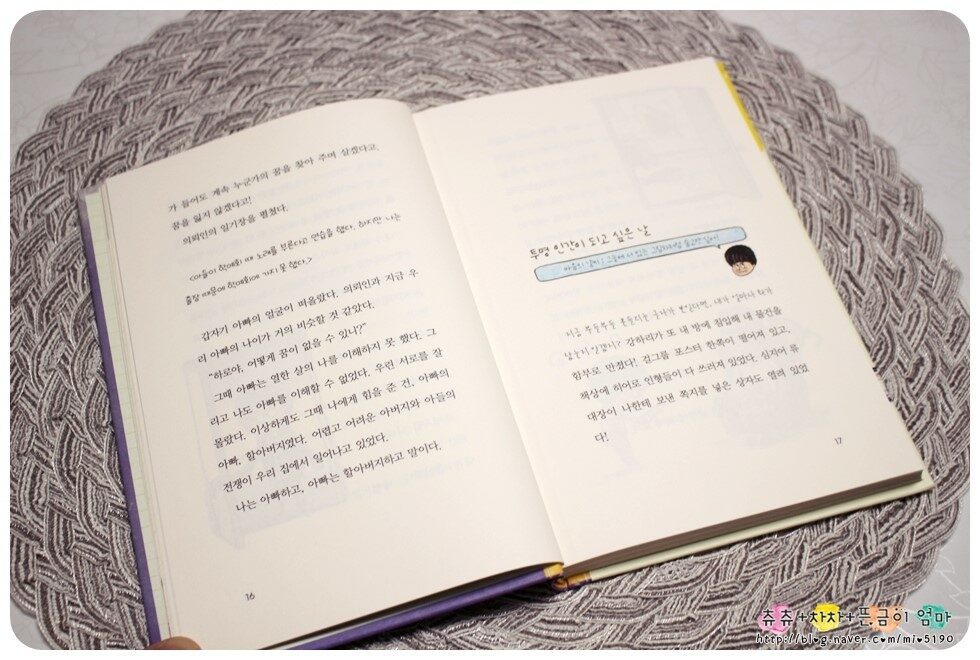 가 들어도 계속 누군가의 꿈을 찾아 주며 살겠다고,
꿈을 잃지 않겠다고!
의뢰인의 일기장을 펼쳤다.
<아들이 학예회 때 노래를 부른다고 연습을 했다. 하지만 나는
출장 때문에 학예회에 가지 못 했다.>
갑자기 아빠의 얼굴이 떠올랐다. 의뢰인과 지금 우
리 아빠의 나이가 거의 비슷할 것 같았다.
“하로야, 어떻게 꿈이 없을 수 있니?”
그때 아빠는 열한 살의 나를 이해하지 못 했다. 그
리고 나도 아빠를 이해할 수 없었다. 우린 서로를 잘
몰랐다. 이상하게도 그때 나에게 힘을 준 건, 아빠의
아빠, 할아버지였다. 어렵고 어려운 아버지와 아들의
전쟁이 우리 집에서 일어나고 있었다.
나는 아빠하고, 아빠는 할아버지하고 말이다.
16
투명 인간이 되고 싶은 날
마음의 날씨 :
지금 부들부들 흔들리는 글씨가 보인다면, 내가 얼마나 화가
났는지 알겠지? 강하리가 또 내 방에 침입해 내 물건을
함부로 만졌다! 걸그룹 포스터 한쪽이 떨어져 있고,
책상에 히어로 인형들이 다 쓰러져 있었다. 심지어 류
대장이 나한테 보낸 쪽지를 넣은 상자도 열려 있었
다!
17
츄츄+차차+뜬금이 엄마
http://blog.naver.com/mio5190